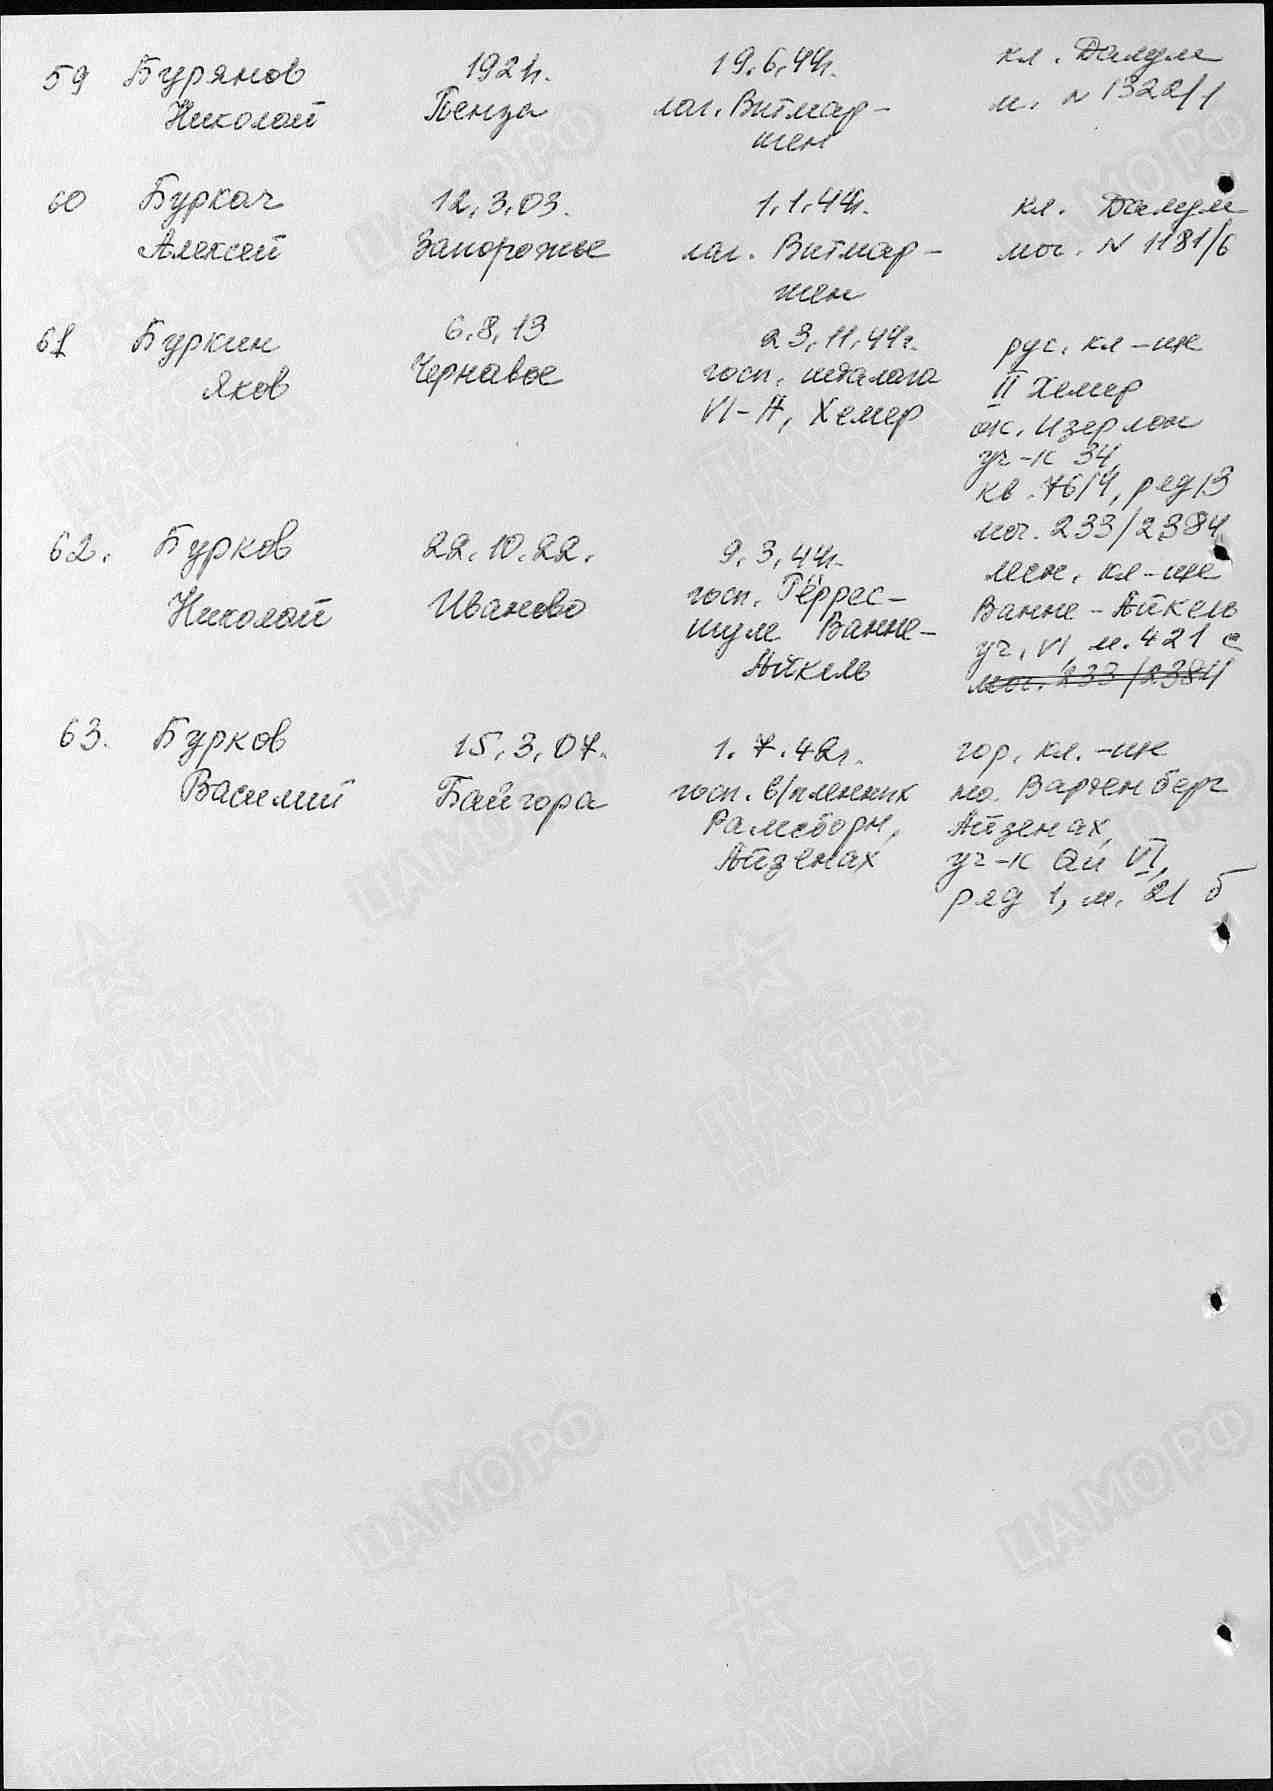 59 Бурянов 1924г. 19.6.44г. кл. Далум
Николай Пенза лаг. Витмар- м. N 1322/1
шен
60 Буркач 12.3.03. 1.1.44г. кл. Далум
Алексей Запорожье лаг. Витмар- мог. N 1181/6
шен
61 Буркин 6.8.13 23.11.44г. рус. кл-ще
Яков Чернавое госп. шталага II Хемер
VI-А, Хемер ок. Изерлон
уч-к 34,
кв. 76/4, ряд 13
мог. 233/2384,
62. Бурков 22.10.22. 9.3.44г. мен. кл-ще
Николай Иваново госп. Гёррес- Ванне-Айкель
шуле Ванне- уч. VI м. 421 с
Айкель мог. 233/2384
63. Бурков 15.3.07. 1.7.42г. гор. кл.-ще
Василий Байгора госп. в/пленник по. Вартенберг
Рамсборн, Айзенах,
Айзенах уч-к Ай VI,
ряд 1, м. 21 б
ЦАМО.РФ
ПАМЯТЬ
НАРОДА